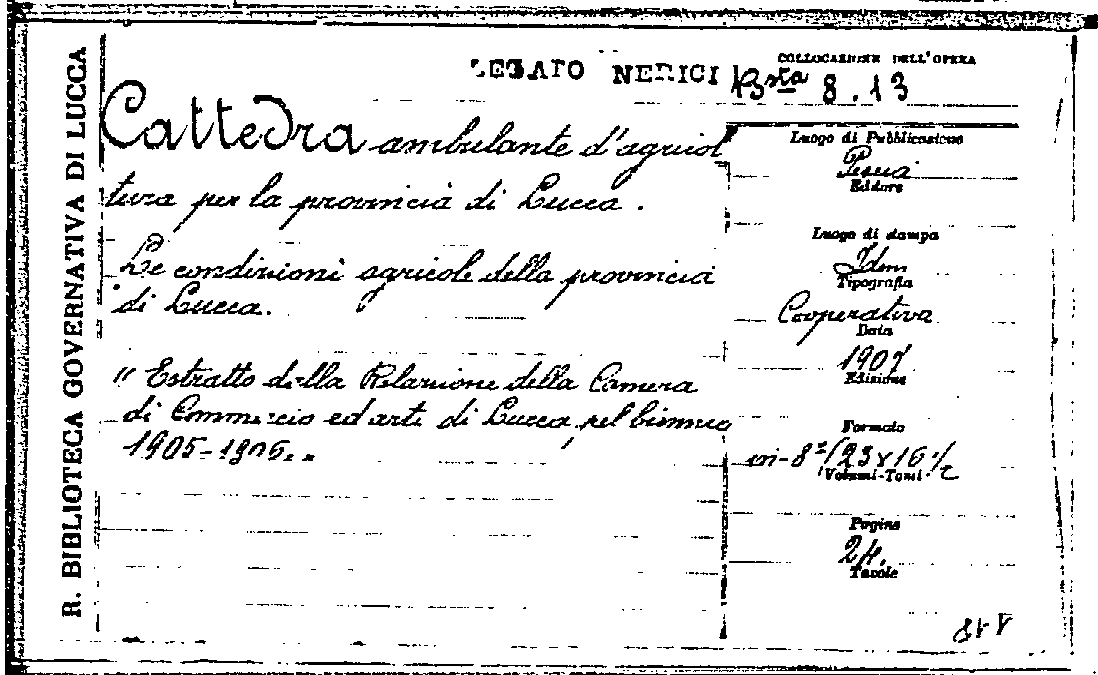 R. BIBLIOTECA GOVERNATIVA DI LUCCA
LEGATO NERICI
COLLOCAZIONE DELL'OPERA
Bsta 8.13
Cattedra ambulante d'agricol
tura per la provincia di Lucca.
Le condizioni agricole della provincia
di Lucca.
" Estratto della Relazione della Camera
di Commercio ed arti di Lucca, pel biennio
1905-1906. "
Luogo di Pubblicazione
Pescia
Editore
Luogo di stampa
Idem
Tipografia
Cooperativa
Data
1907
Edizione
Formato
in-8° (23 x 16 ½
Volumi-Tomi
Pagine
24.
Tavole